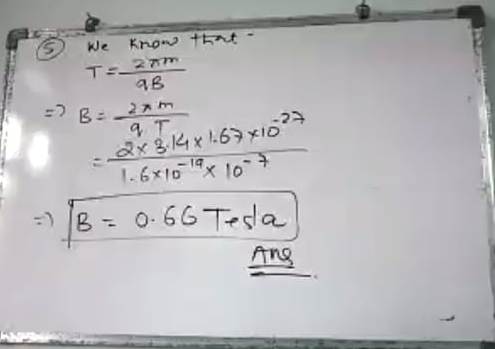 ⑤ We know that -
T = 2πm / qB
=> B = 2πm / qT
= 2×3.14×1.67×10^-27 / 1.6×10^-19×10^-7
=> B = 0.66 Tesla
Ans